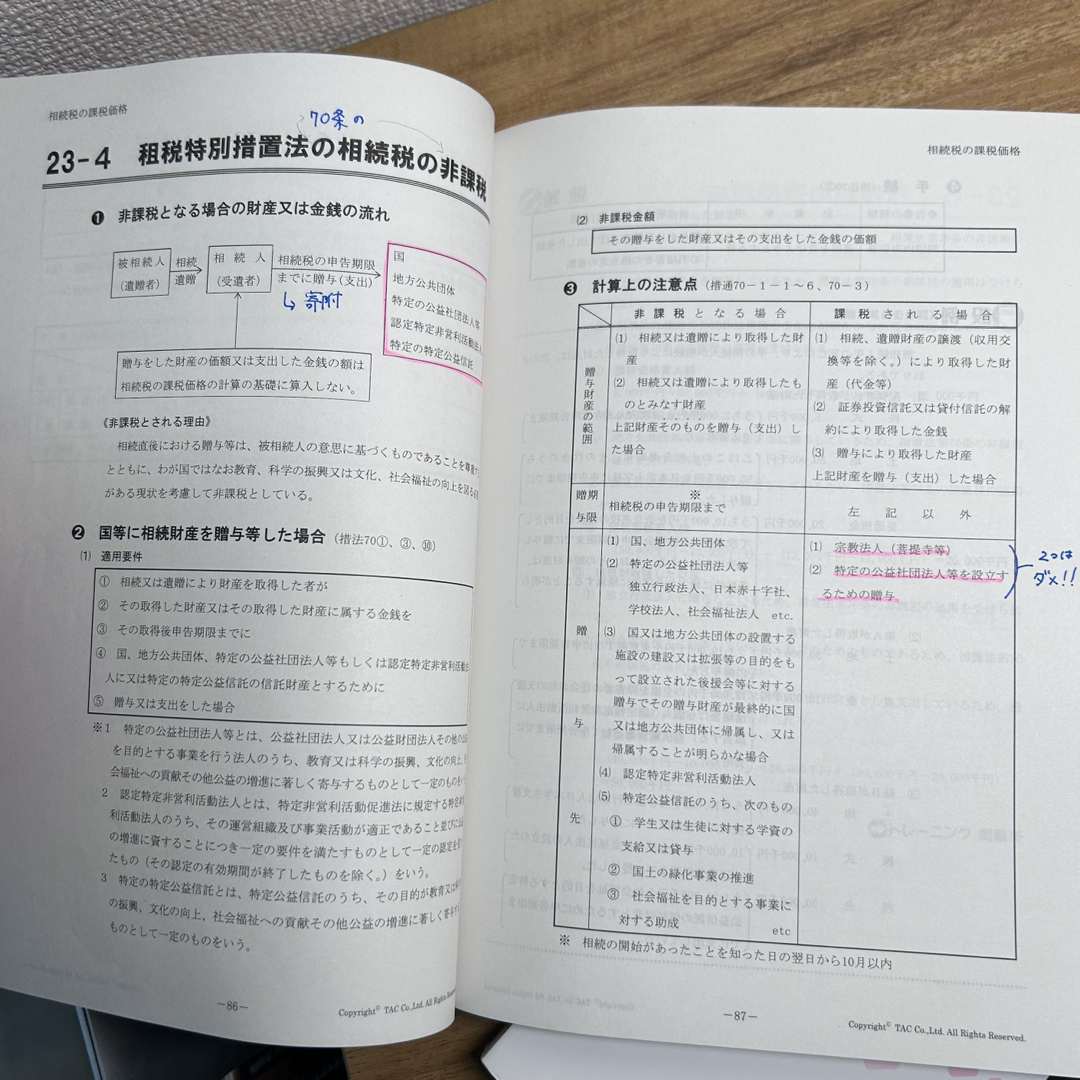 相続税の課税価格
70条の
23-4 租税特別措置法の相続税の非課税
❶ 非課税となる場合の財産又は金銭の流れ
被相続人
(遺贈者)
相続
遺贈
相続人
(受遺者)
相続税の申告期限
までに贈与(支出)
↳ 寄附
国
地方公共団体
特定の公益社団法人等
認定特定非営利活動法人
特定の特定公益信託
贈与をした財産の価額又は支出した金銭の額は
相続税の課税価格の計算の基礎に算入しない。
《非課税とされる理由》
相続直後における贈与等は、被相続人の意思に基づくものであることを尊重す
とともに、わが国ではなお教育、科学の振興又は文化、社会福祉の向上を図る
がある現状を考慮して非課税としている。
❷ 国等に相続財産を贈与等した場合(措法70①、③、⑩)
(1) 適用要件
① 相続又は遺贈により財産を取得した者が
② その取得した財産又はその取得した財産に属する金銭を
③ その取得後申告期限までに
④ 国、地方公共団体、特定の公益社団法人等もしくは認定特定非営利活動法
人に又は特定の特定公益信託の信託財産とするために
⑤ 贈与又は支出をした場合
※1 特定の公益社団法人等とは、公益社団法人又は公益財団法人その他の公
を目的とする事業を行う法人のうち、教育又は科学の振興、文化の向上、
会福祉への貢献その他公益の増進に著しく寄与するものとして一定のものをい
2 認定特定非営利活動法人とは、特定非営利活動促進法に規定する特定非
利活動法人のうち、その運営組織及び事業活動が適正であること並びに公
の増進に資することにつき一定の要件を満たすものとして一定の認定を受
たもの(その認定の有効期間が終了したものを除く。)をいう。
3 特定の特定公益信託とは、特定公益信託のうち、その目的が教育又は科
の振興、文化の向上、社会福祉への貢献その他公益の増進に著しく寄与す
ものとして一定のものをいう。
-86-
Copyright© TAC Co.,Ltd. All Rights Reserved.
相続税の課税価格
(2) 非課税金額
その贈与をした財産又はその支出をした金銭の価額
❸ 計算上の注意点(措通70-1-1~6、70-3)
非課税となる場合
課税される場合
贈与財産の範囲
(1) 相続又は遺贈により取得した財
産
(2) 相続又は遺贈により取得したも
のとみなす財産
上記財産そのものを贈与(支出)し
た場合
(1) 相続、遺贈財産の譲渡(収用交
換等を除く。)により取得した財
産(代金等)
(2) 証券投資信託又は貸付信託の解
約により取得した金銭
(3) 贈与により取得した財産
上記財産を贈与(支出)した場合
贈期
与限
※
相続税の申告期限まで
左記以外
贈与先
(1) 国、地方公共団体
(2) 特定の公益社団法人等
独立行政法人、日本赤十字社、
学校法人、社会福祉法人 etc.
(3) 国又は地方公共団体の設置する
施設の建設又は拡張等の目的をも
って設立された後援会等に対する
贈与でその贈与財産が最終的に国
又は地方公共団体に帰属し、又は
帰属することが明らかな場合
(4) 認定特定非営利活動法人
(5) 特定公益信託のうち、次のもの
① 学生又は生徒に対する学資の
支給又は貸与
② 国土の緑化事業の推進
③ 社会福祉を目的とする事業に
対する助成 etc
(1) 宗教法人(菩提寺等)
(2) 特定の公益社団法人等を設立す
るための贈与
2つは
ダメ!!
※ 相続の開始があったことを知った日の翌日から10月以内
-87-
Copyright© TAC Co.,Ltd. All Rights Reserved.